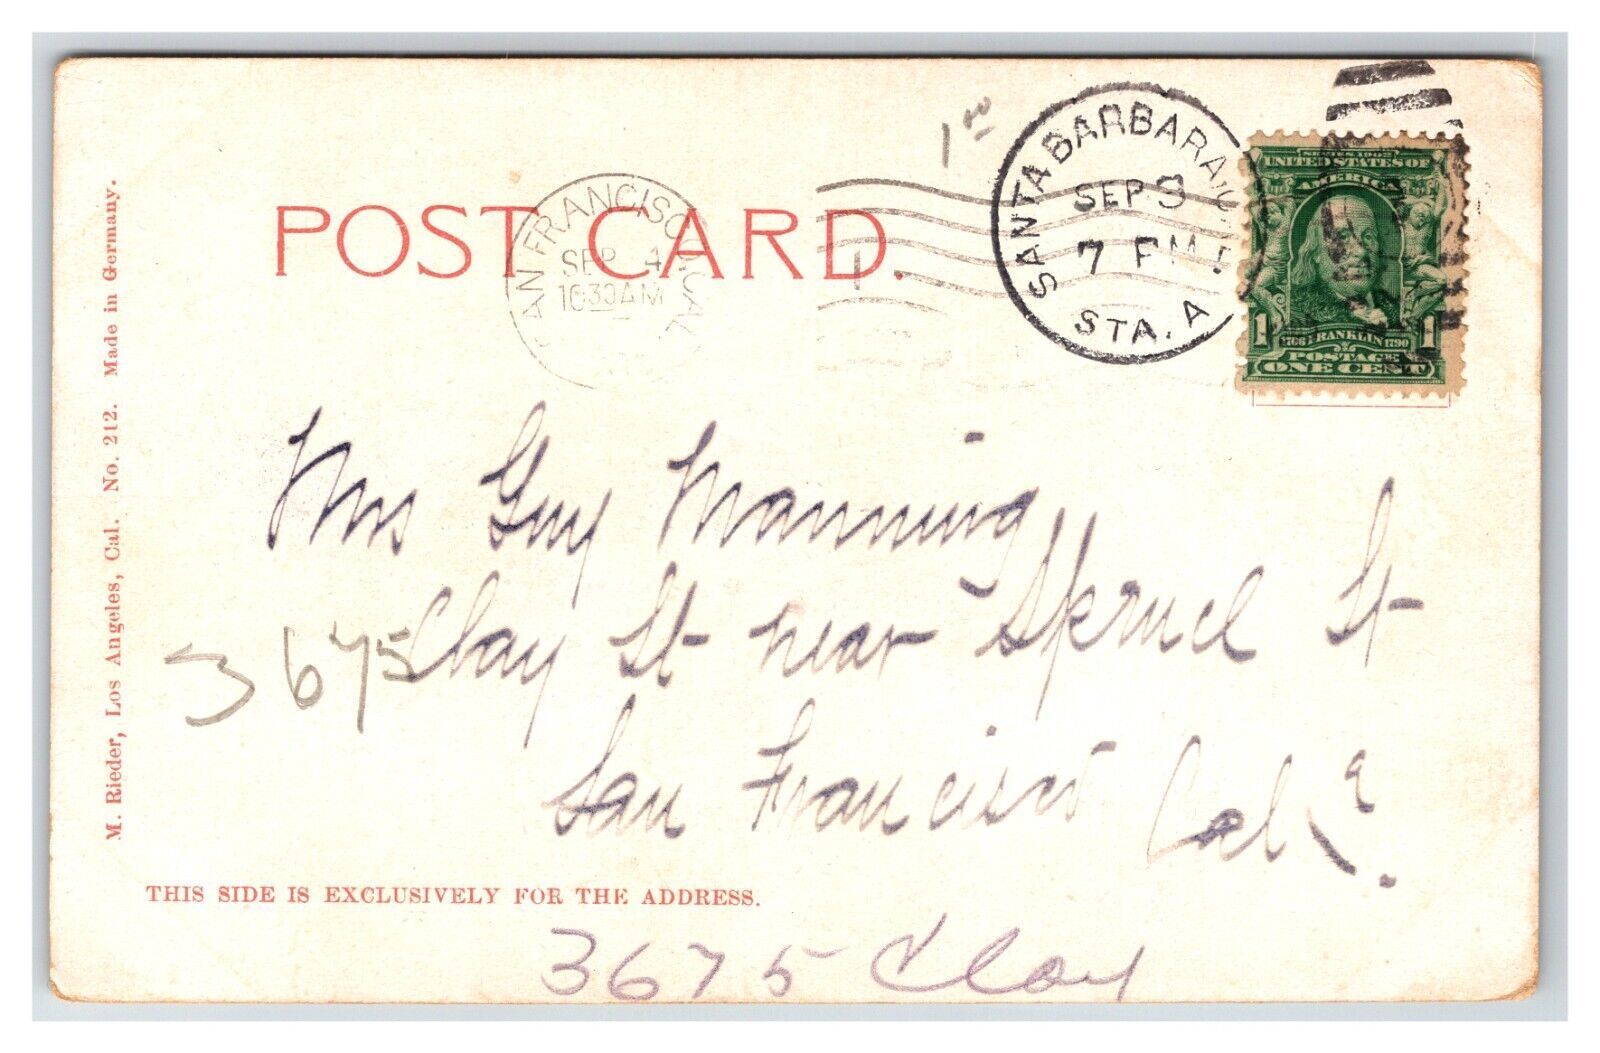 1 00
POST CARD.
SAN FRANCISCO, CAL.
SEP 4
10:30 AM
SANTA BARBARA
SEP 3
7 PM
STA. A
SERIES 1902
UNITED STATES OF
AMERICA
1 1706 FRANKLIN 1790 1
POSTAGE
ONE CENT
M. Rieder, Los Angeles, Cal. No. 212. Made in Germany.
Mrs Guy Manning
3675 Clay St near Spruce St
San Francisco Cal.
THIS SIDE IS EXCLUSIVELY FOR THE ADDRESS.
3675 Clay